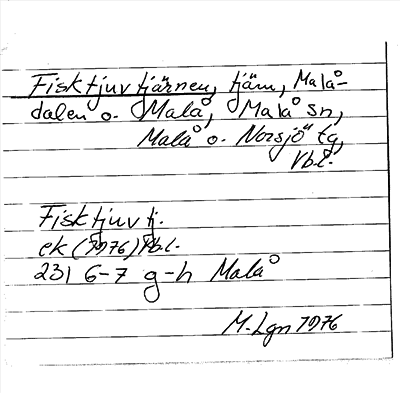 Fisktjuvtjärnen, tjärn, Malå-
dalen o. Malå, Malå sn,
Malå o. Norsjö tg,
Vb.l.
Fisktjuvtj.
ek (1976) Vb.l.
231 6-7 g-h Malå
M. Lgn 1976